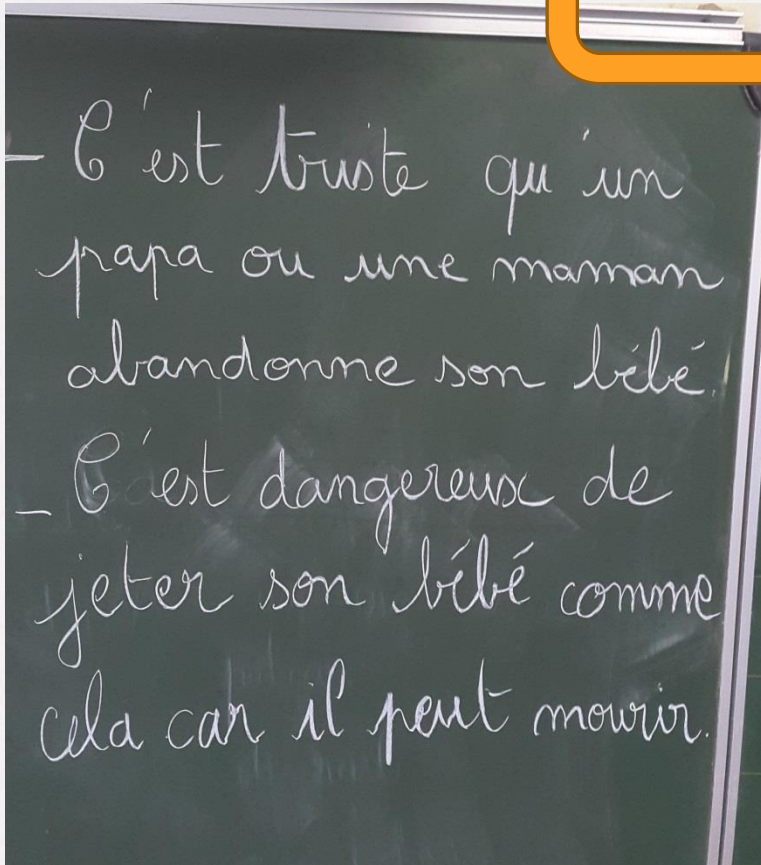 - C'est triste qu'un
papa ou une maman
abandonne son bébé.
- C'est dangereux de
jeter son bébé comme
cela car il peut mourir.